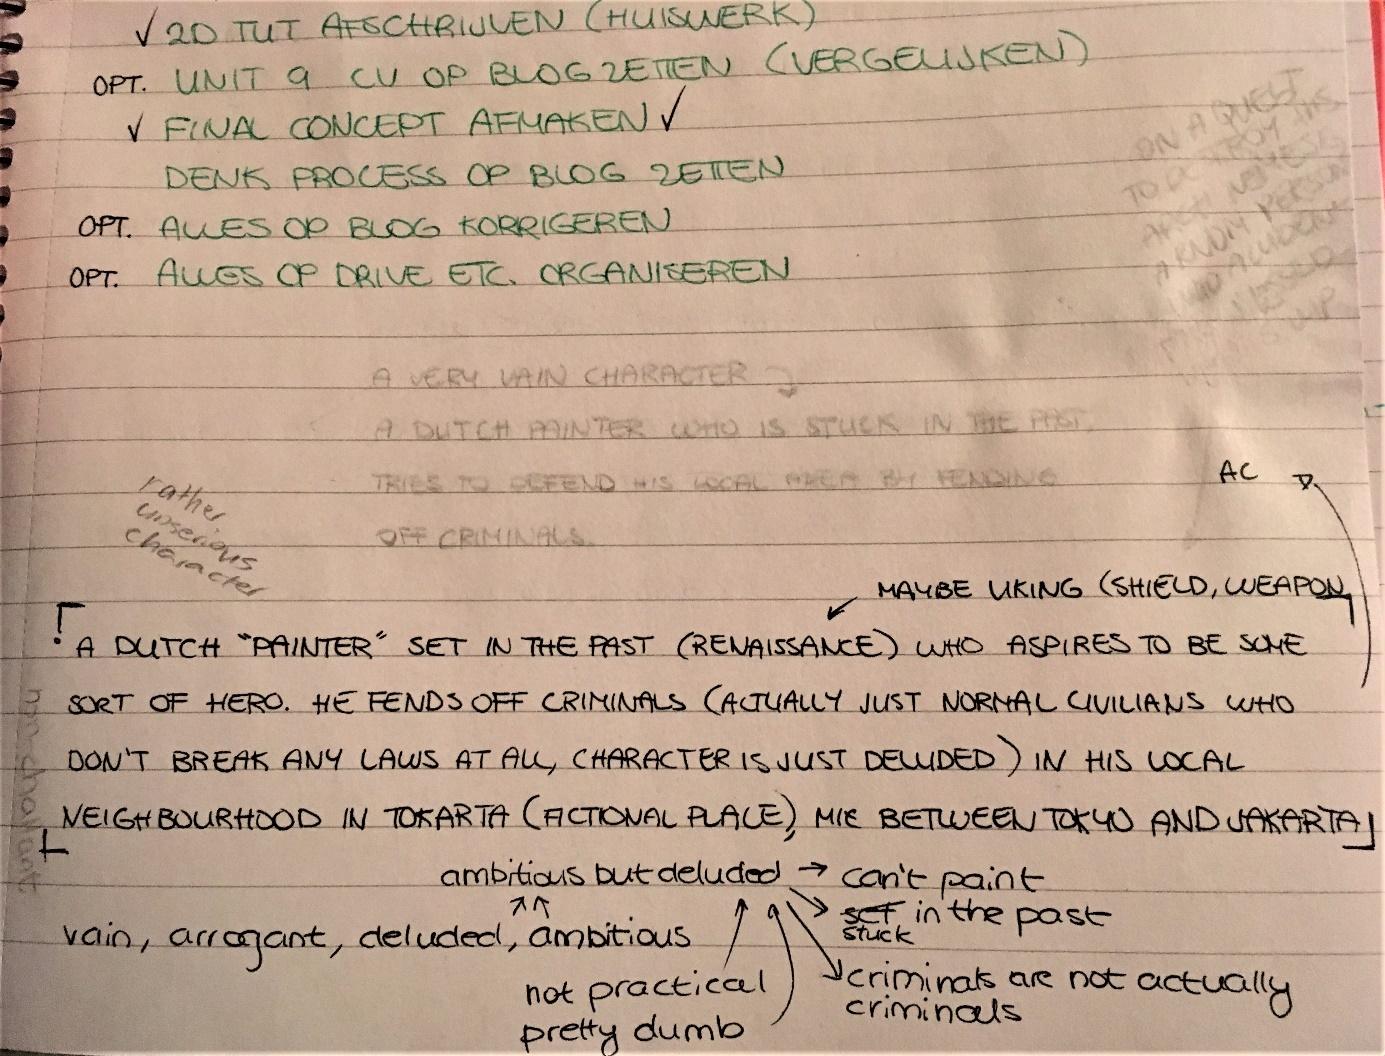 ✓ 2D TUT AFSCHRIJVEN (HUISWERK)
OPT. UNIT 9 CV OP BLOG ZETTEN (VERGELIJKEN)
✓ FINAL CONCEPT AFMAKEN ✓
DENK PROCESS OP BLOG ZETTEN
OPT. ALLES OP BLOG KORRIGEREN
OPT. ALLES OP DRIVE ETC. ORGANISEREN
ON A QUEST
TO
ARCH NEMESIS
PERSON
A VERY VAIN CHARACTER
A DUTCH PAINTER WHO IS STUCK IN THE PAST,
TRIES TO DEFEND HIS LOCAL AREA BY FENDING
OFF CRIMINALS.
AC
rather
unserious
character
MAYBE VIKING (SHIELD, WEAPON
A DUTCH "PAINTER" SET IN THE PAST (RENAISSANCE) WHO ASPIRES TO BE SOME
SORT OF HERO. HE FENDS OFF CRIMINALS (ACTUALLY JUST NORMAL CIVILIANS WHO
DON'T BREAK ANY LAWS AT ALL, CHARACTER IS JUST DELUDED) IN HIS LOCAL
NEIGHBOURHOOD IN TOKARTA (FICTIONAL PLACE), MIX BETWEEN TOKYO AND JAKARTA
nonchalant
ambitious but deluded → can't paint
set in the past
stuck
vain, arrogant, deluded, ambitious
criminals are not actually
criminals
not practical
pretty dumb